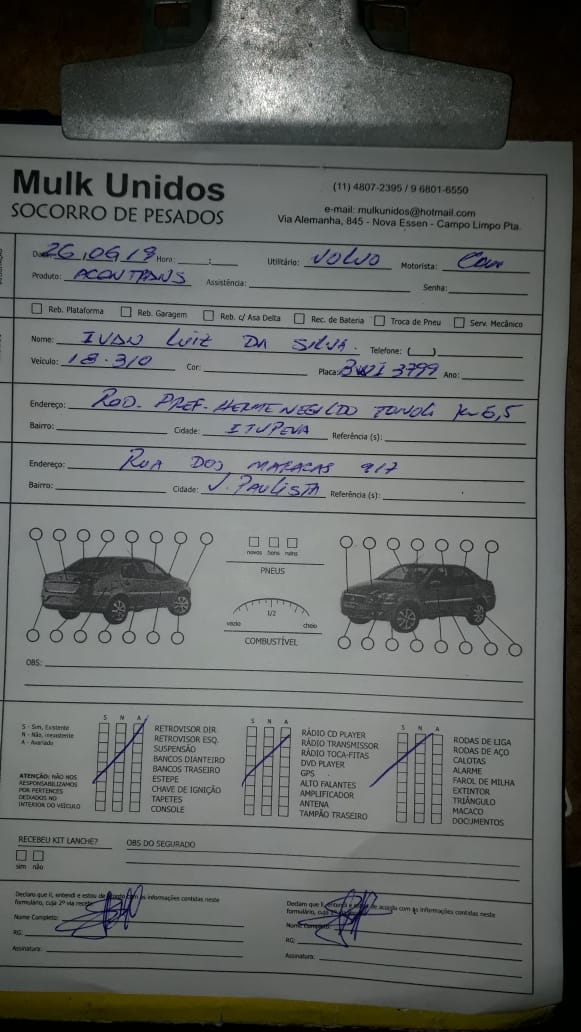 Mulk Unidos
SOCORRO DE PESADOS
(11) 4807-2395 / 9 6801-6550
e-mail: mulkunidos@hotmail.com
Via Alemanha, 845 - Nova Essen - Campo Limpo Pta.
Data: 26,06,18 Hora: ____:____ Utilitário: VOLVO Motorista:
Produto: ACONTRANS Assistência: Senha:
Reb. Plataforma Reb. Garagem Reb. c/ Asa Delta Rec. de Bateria Troca de Pneu Serv. Mecânico
Nome: IVAN LUIZ DA SILVA. Telefone: (__)
Veículo: 18.310 Cor: Placa: 3799 Ano:
Endereço: ROD. PREF. HERMENEGILDO TONOLI KM 6,5
Bairro: Cidade: ITUPEVA Referência (s):
Endereço: RUA DOS 917
Bairro: Cidade: V. PAULISTA Referência (s):
novos bons ruins
PNEUS
1/2
vazio cheio
COMBUSTÍVEL
OBS:
S - Sim, Existente
N - Não, inexistente
A - Avariado
ATENÇÃO: NÃO NOS
RESPONSABILIZAMOS
POR PERTENCES
DEIXADOS NO
INTERIOR DO VEÍCULO
S N A
RETROVISOR DIR.
RETROVISOR ESQ.
SUSPENSÃO
BANCOS DIANTEIRO
BANCOS TRASEIRO
ESTEPE
CHAVE DE IGNIÇÃO
TAPETES
CONSOLE
S N A
RÁDIO CD PLAYER
RÁDIO TRANSMISSOR
RÁDIO TOCA-FITAS
DVD PLAYER
GPS
ALTO FALANTES
AMPLIFICADOR
ANTENA
TAMPÃO TRASEIRO
S N A
RODAS DE LIGA
RODAS DE AÇO
CALOTAS
ALARME
FAROL DE MILHA
EXTINTOR
TRIÂNGULO
MACACO
DOCUMENTOS
RECEBEU KIT LANCHE?
sim não
OBS DO SEGURADO
Declaro que li, entendi e estou de acordo com as informações contidas neste
formulário, cuja 2ª via recebi.
Nome Completo:
RG:
Assinatura:
Declaro que li, entendi e estou de acordo com as informações contidas neste
formulário, cuja 2ª via
Nome Completo:
RG:
Assinatura: